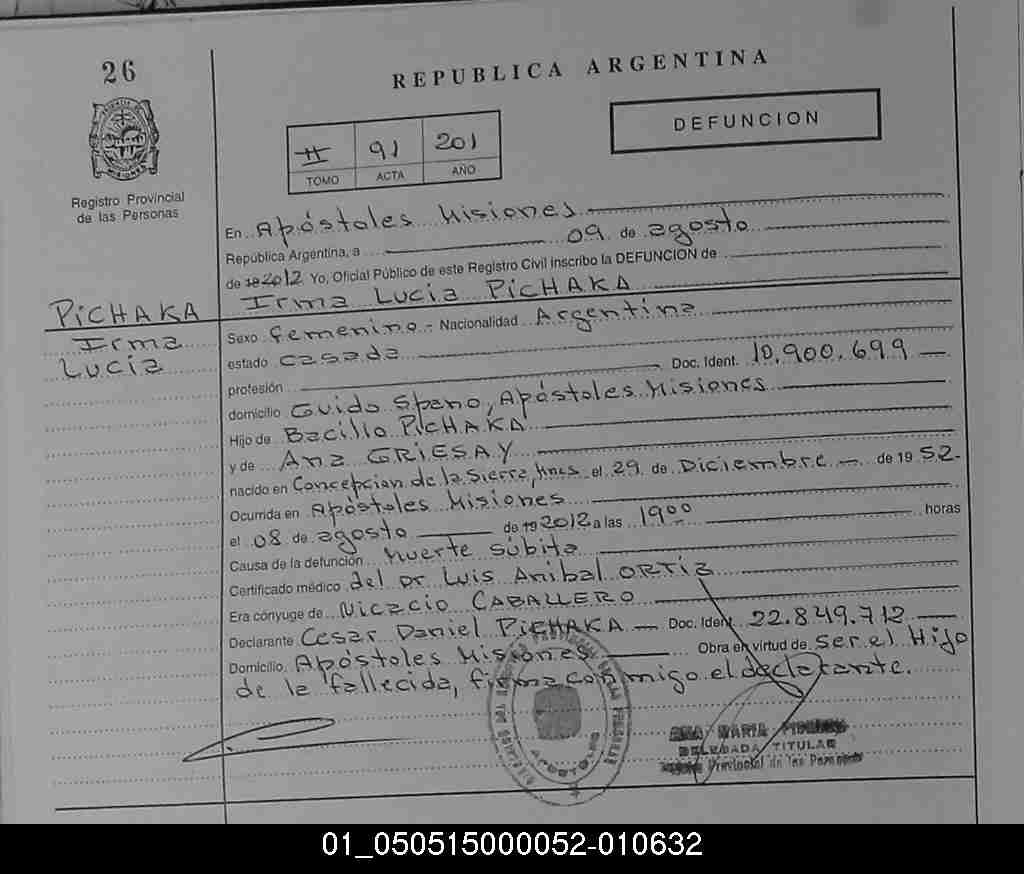 26
REPUBLICA ARGENTINA
DEFUNCION
II 91 201
TOMO ACTA AÑO
Registro Provincial
de las Personas
En Apóstoles Misiones
República Argentina, a 09 de agosto
de 19 2012 Yo, Oficial Público de este Registro Civil inscribo la DEFUNCION de
Irma Lucia PiCHAKA
PiCHAKA
Irma
Lucia
Sexo femenino.- Nacionalidad Argentina
estado casada
profesión Doc. Ident. 10.900.699
domicilio Guido Spano, Apóstoles Misiones
Hijo de Bacilio PiCHAKA
y de Ana GRIESAY
nacido en Concepcion de la Sierra, Mnes el 29 de Diciembre de 19 52.
Ocurrida en Apóstoles Misiones
el 08 de agosto de 19 2012 a las 19 00 horas
Causa de la defunción Muerte súbita
Certificado médico del Dr Luis Anibal ORTIZ
Era cónyuge de Nicacio CABALLERO
Declarante Cesar Daniel PiCHAKA Doc. Ident. 22.849.712
Domicilio Apóstoles Misiones Obra en virtud de ser el Hijo
de la fallecida, firma conmigo el declarante.
ANA MARIA
DELEGADA TITULAR
Provincial de las Personas
APOSTOLES
01_050515000052-010632